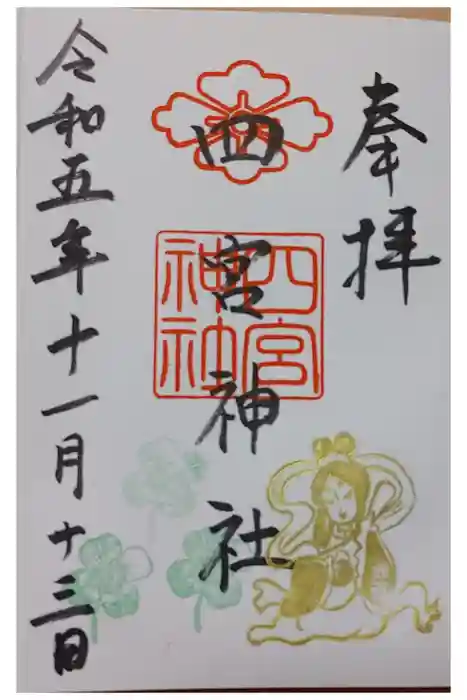 奉拝
四宮神社
四宮
神社
令和五年十一月十三日